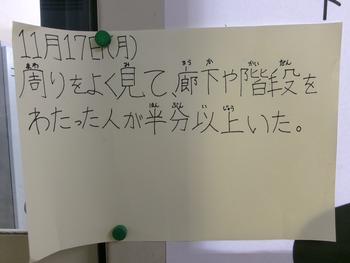 11月17日(月)
周りをよく見て、廊下や階段を
わたった人が半分以上いた。